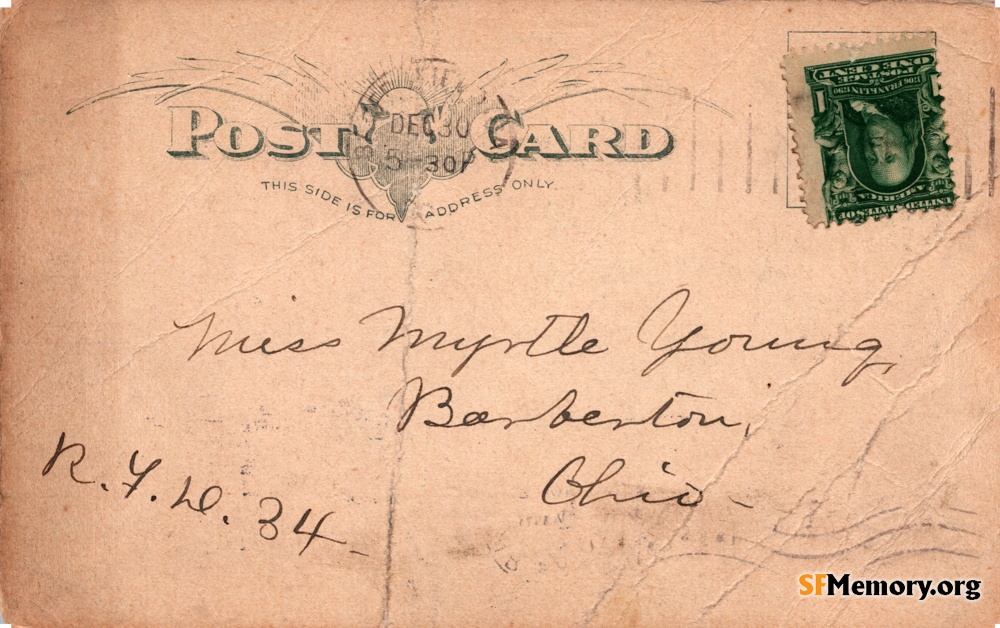 POST CARD
THIS SIDE IS FOR ADDRESS ONLY.
DEC 30
5-30P
ONE CENT
POSTAGE
1706 FRANKLIN 1790
1 1
UNITED STATES OF
AMERICA
Miss Myrtle Young,
Barberton,
Ohio-
R.F.D. 34-
SFMemory.org